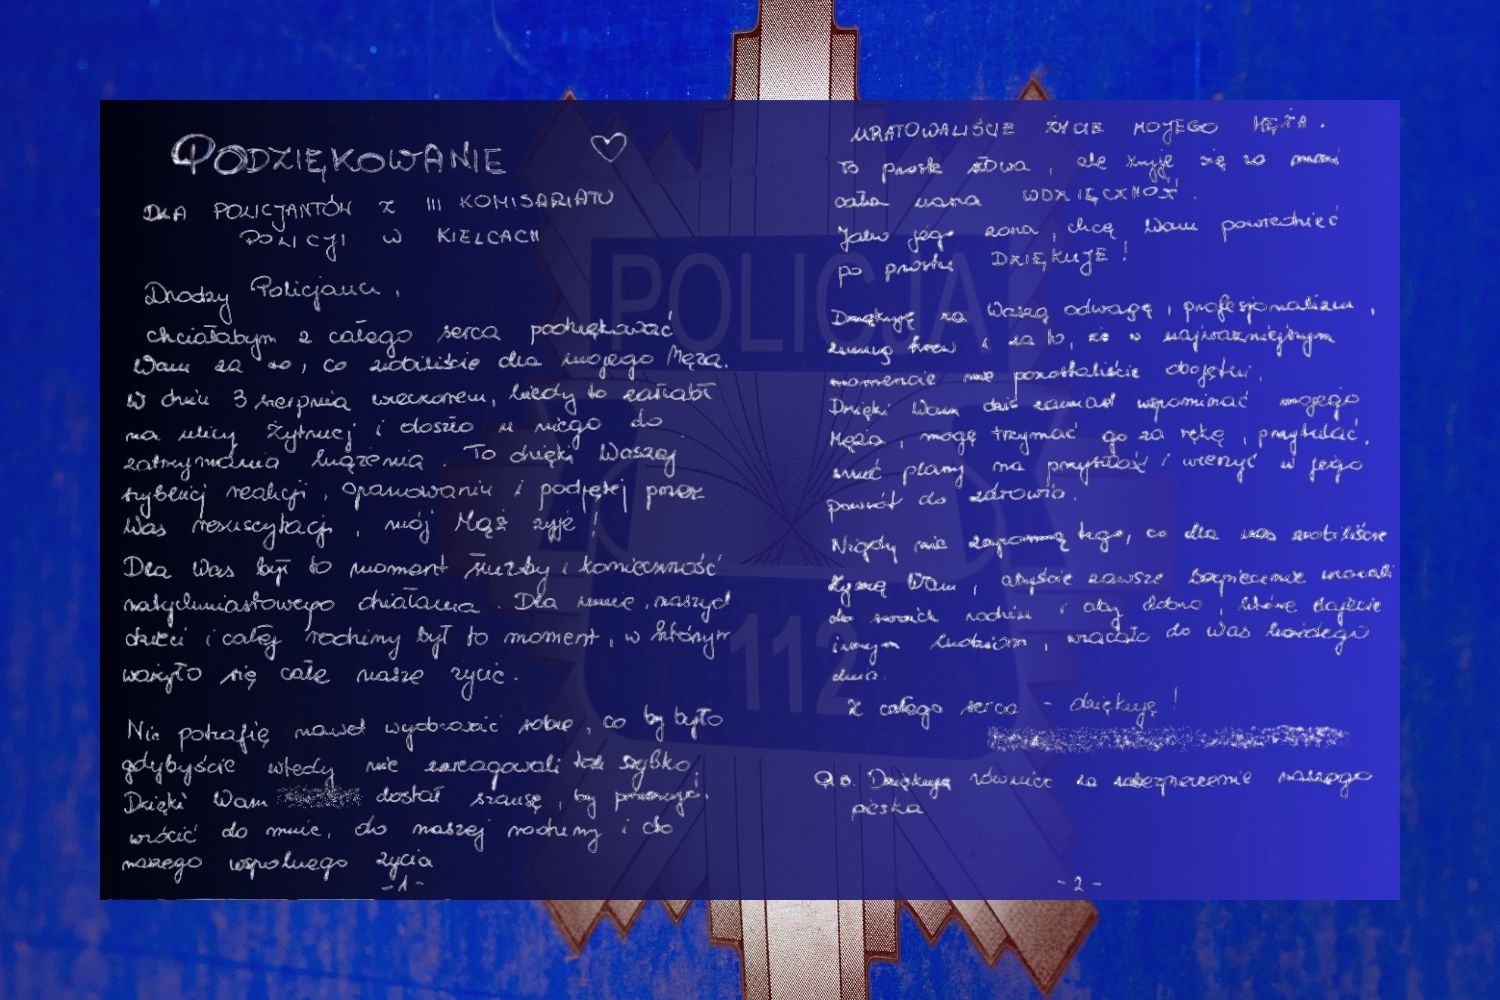 PODZIĘKOWANIE ♡
DLA POLICJANTÓW Z III KOMISARIATU
POLICJI W KIELCACH
Drodzy Policjanci,
chciałabym z całego serca podziękować
Wam za to, co zrobiliście dla mojego Męża.
W dniu 3 sierpnia wieczorem, kiedy to zasłabł
na ulicy Żytniej i doszło u niego do
zatrzymania krążenia. To dzięki Waszej
szybkiej reakcji, opanowaniu i podjętej przez
Was resuscytacji, mój Mąż żyje!
Dla Was był to moment służby i konieczność
natychmiastowego działania. Dla mnie, naszych
dzieci i całej rodziny był to moment, w którym
ważyło się całe nasze życie.
Nie potrafię nawet wyobrazić sobie, co by było
gdybyście wtedy nie zareagowali tak szybko.
Dzięki Wam dostał szansę, by przeżyć,
wrócić do mnie, do naszej rodziny i do
naszego wspólnego życia
-1-
URATOWALIŚCIE ŻYCIE MOJEGO MĘŻA.
To proste słowa, ale kryje się za nimi
cała nasza WDZIĘCZNOŚĆ.
Jako jego żona, chcę Wam powiedzieć
po prostu DZIĘKUJĘ!
Dziękuję za Waszą odwagę, profesjonalizm,
zimną krew i za to, że w najważniejszym
momencie nie pozostaliście obojętni.
Dzięki Wam dziś zamiast wspominać mojego
Męża, mogę trzymać go za rękę, przytulać,
snuć plany na przyszłość i wierzyć w jego
powrót do zdrowia.
Nigdy nie zapomnę tego, co dla nas zrobiliście
Życzę Wam, abyście zawsze bezpiecznie wracali
do swoich rodzin i aby dobro, które dajecie
innym ludziom, wracało do Was każdego
dnia.
Z całego serca - dziękuję!
P.s. Dziękuję również za zabezpieczenie naszego
pieska
-2-
POLICJA
112